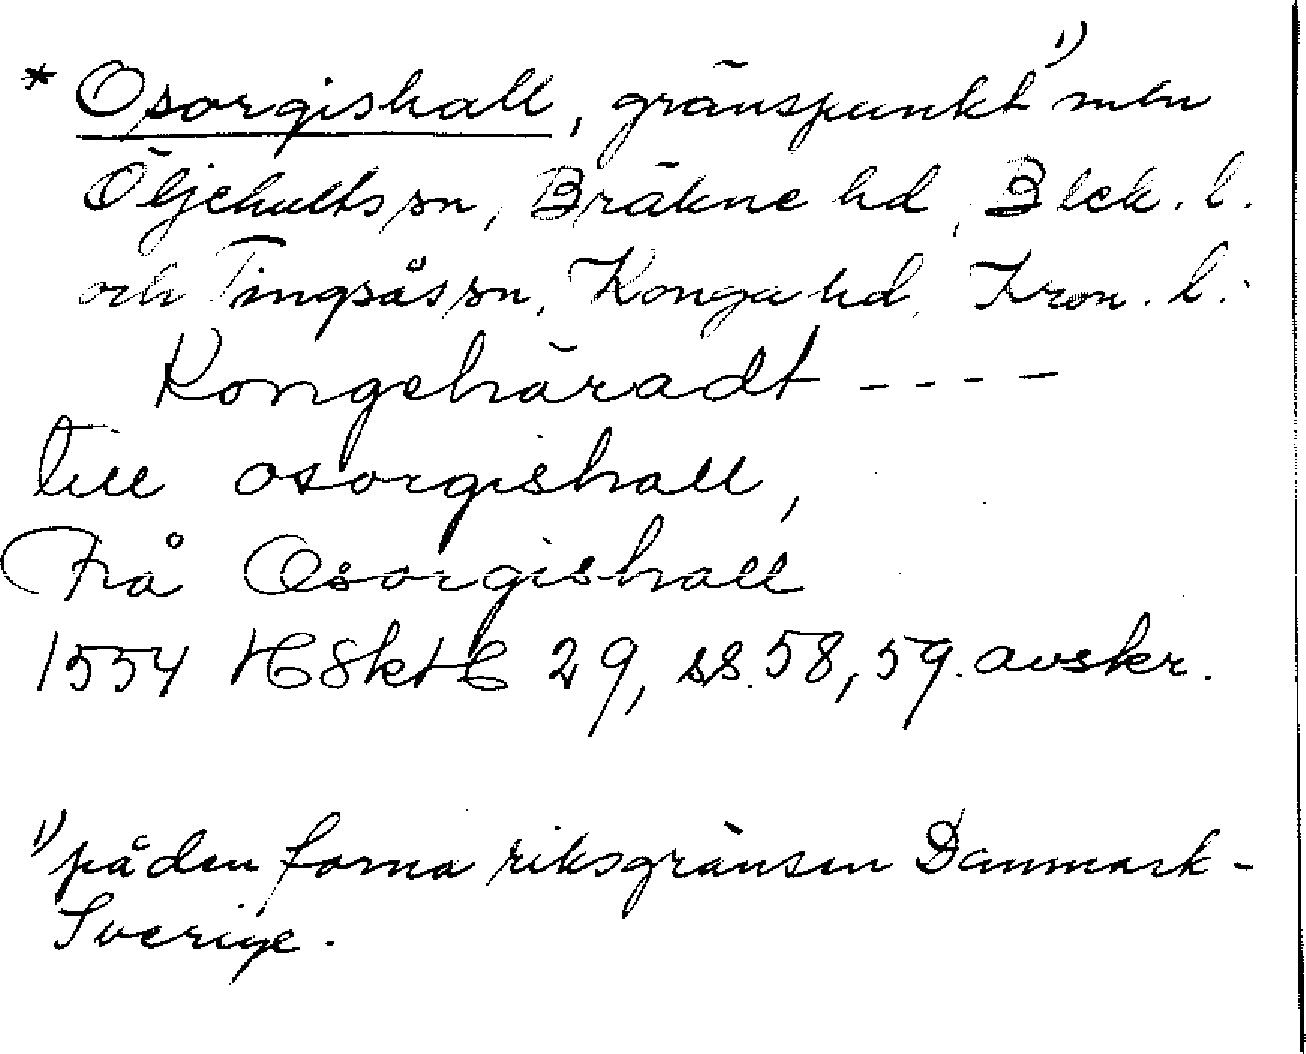 * Osorgishall, gränspunkt 1) mellan
Öljehults sn, Bräkne hd, Blek. l.
och Tingsås sn, Konga hd, Kron. l.:
Kongehäradt - - - -
till osorgishall,
Frå Osorgishall
1554 HSkH 29, ss. 58, 59. avskr.
1) på den forna riksgränsen Danmark-
Sverige.